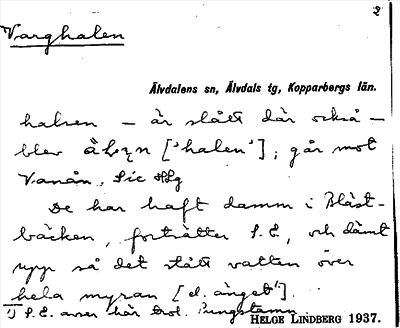 2
Varghalen
Älvdalens sn, Älvdals tg, Kopparbergs län.
halsen – är slått där också –
blev [»halen»]; går mot
Vanån. Sic HLg
De har haft damm i Bläst-
bäcken, fortsätter S. E., och dämt
upp så det stått vatten över
hela myran [el. änget¹].
1) S. E. avser här trol. Pungstamn
HELGE LINDBERG 1937.